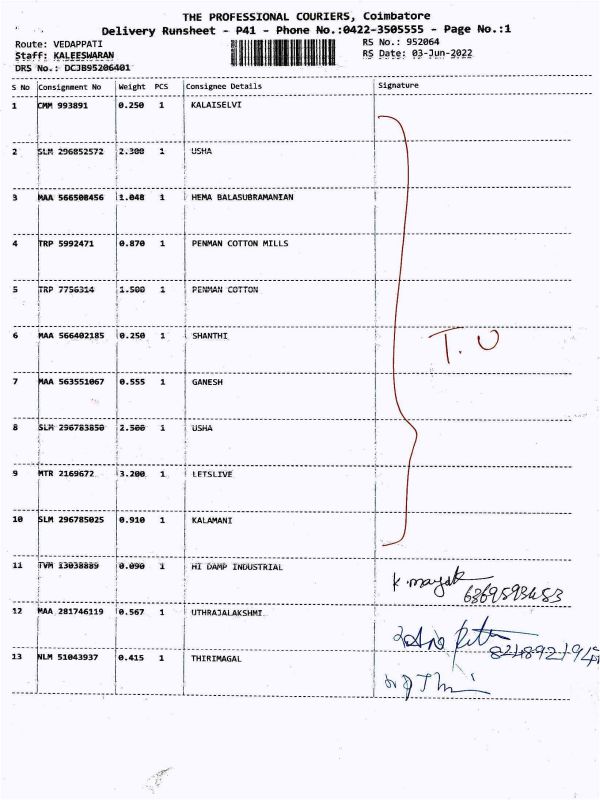 THE PROFESSIONAL COURIERS, Coimbatore
Delivery Runsheet - P41 - Phone No.:0422-3505555 - Page No.:1
Route: VEDAPPATI RS No.: 952064
Staff: KALEESWARAN RS Date: 03-Jun-2022
DRS No.: DCJB95206401
S No Consignment No Weight PCS Consignee Details Signature
1 CMM 993891 0.250 1 KALAISELVI
2 SLM 296852572 2.300 1 USHA
3 MAA 566508456 1.048 1 HEMA BALASUBRAMANIAN
4 TRP 5992471 0.870 1 PENMAN COTTON MILLS
5 TRP 7756314 1.500 1 PENMAN COTTON
T.U
6 MAA 566402185 0.250 1 SHANTHI
7 MAA 563551067 0.555 1 GANESH
8 SLM 296783850 2.500 1 USHA
9 MTR 2169672 3.200 1 LETSLIVE
10 SLM 296785025 0.910 1 KALAMANI
11 TVM 13038889 0.090 1 HI DAMP INDUSTRIAL
12 MAA 281746119 0.567 1 UTHRAJALAKSHMI
13 NLM 51043937 0.415 1 THIRIMAGAL